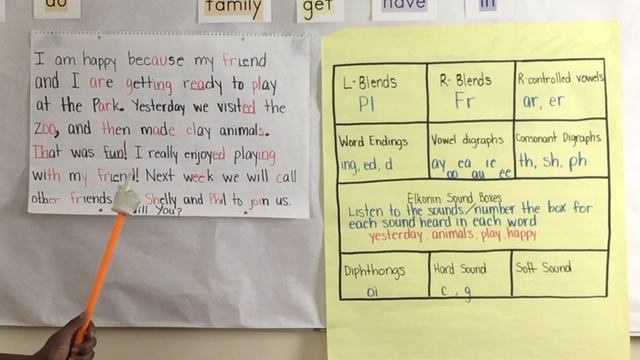 do
family
get
have
in
I am happy because my friend
and I are getting ready to play
at the Park. Yesterday we visited the
Zoo, and then made clay animals.
That was fun! I really enjoyed playing
with my friend! Next week we will call
other friends Shelly and Phil to join us.
Will You?
L-Blends
Pl
R-Blends
Fr
R controlled vowels
ar, er
Word Endings
ing, ed, d
Vowel digraphs
ay ea ie
oo au ee
Consonant Digraphs
th, sh, ph
Elkonin Sound Boxes
Listen to the sounds/number the box for
each sound heard in each word
yesterday, animals, play, happy
Diphthongs
oi
Hard Sound
c, g
Soft Sound